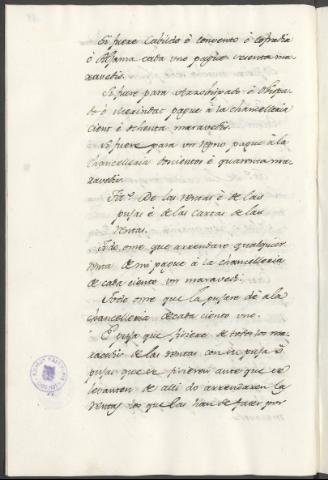 Si fuere Cabildo ò convento ò cofradia
ò Aljama cada uno pague treinta ma-
ravedis.
Si fuere para Arzobispado ò Obispa-
do ò Merindat pague à la chancelleria
cient è ochenta maravedis.
Si fuere para un regno pague à la
chancelleria doscientos è quarenta ma-
ravedis.
De las rentas è de las
pujas è de las cartas de las
rentas.
Todo ome que arrendare qualquier
renta de mi pague à la chancelleria
de cada ciento un maravedi.
Todo ome que la pujare dè à la
chancelleria de cada ciento uno.
E puja que ficiere de todos los ma-
ravedis de las rentas con la puja ò
pujas que se ficieren ante que se
levanten de alli do arrendaren la
renta los que las han de facer por